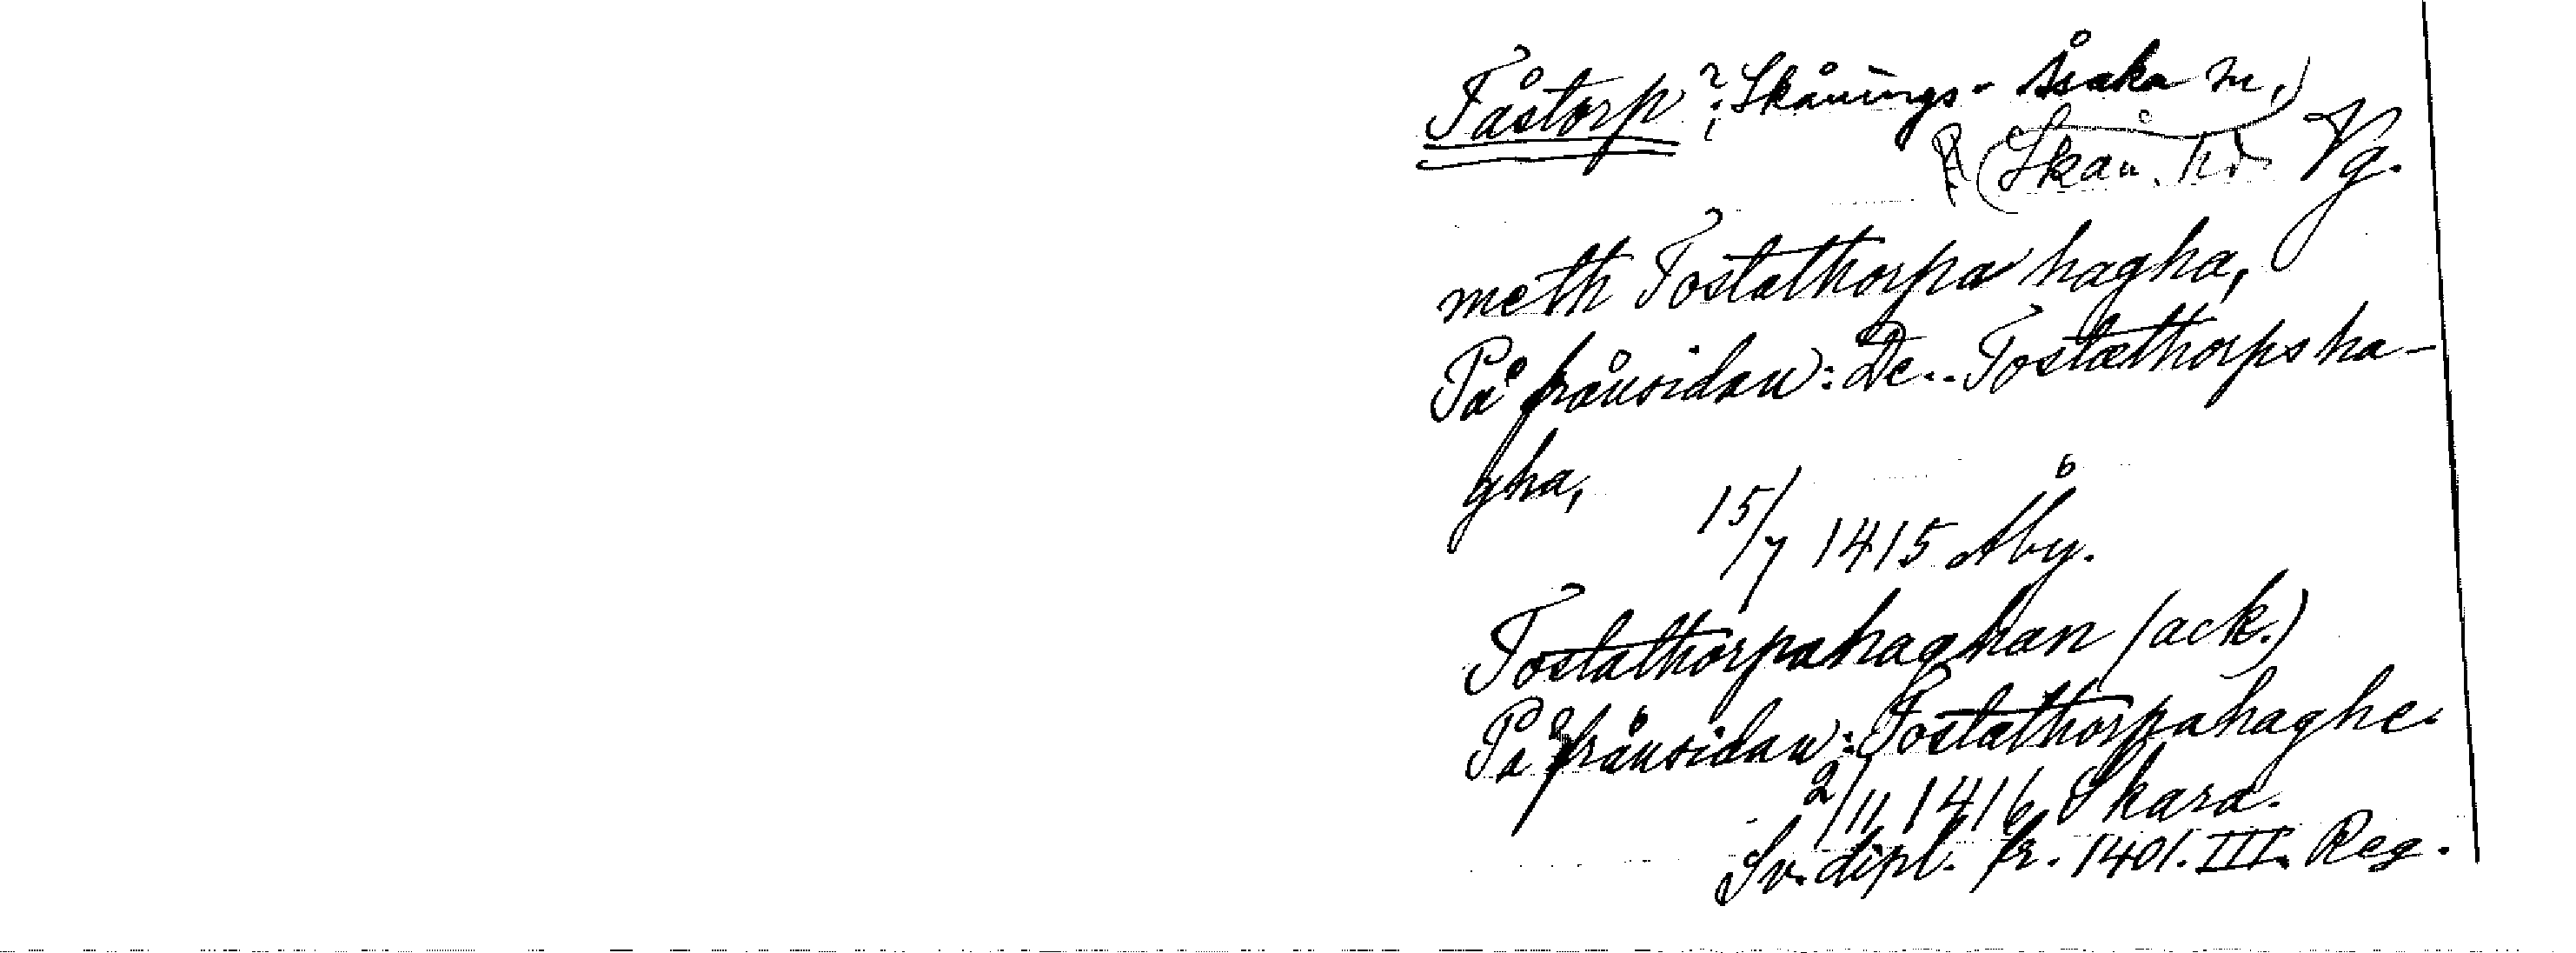 Tåstorp?, Skånings-Åsaka sn,
(Skån. hd Vg.
meth Tostathorpa hagha,
På frånsidan: De.. Tostæthorps ha-
gha,
15/7 1415 Åby.
Tostathorpahaghan (ack.)
På frånsidan: Tostæthorpahaghe.
2/11 1416 Skara.
Sv. dipl. fr. 1401. III. Reg.